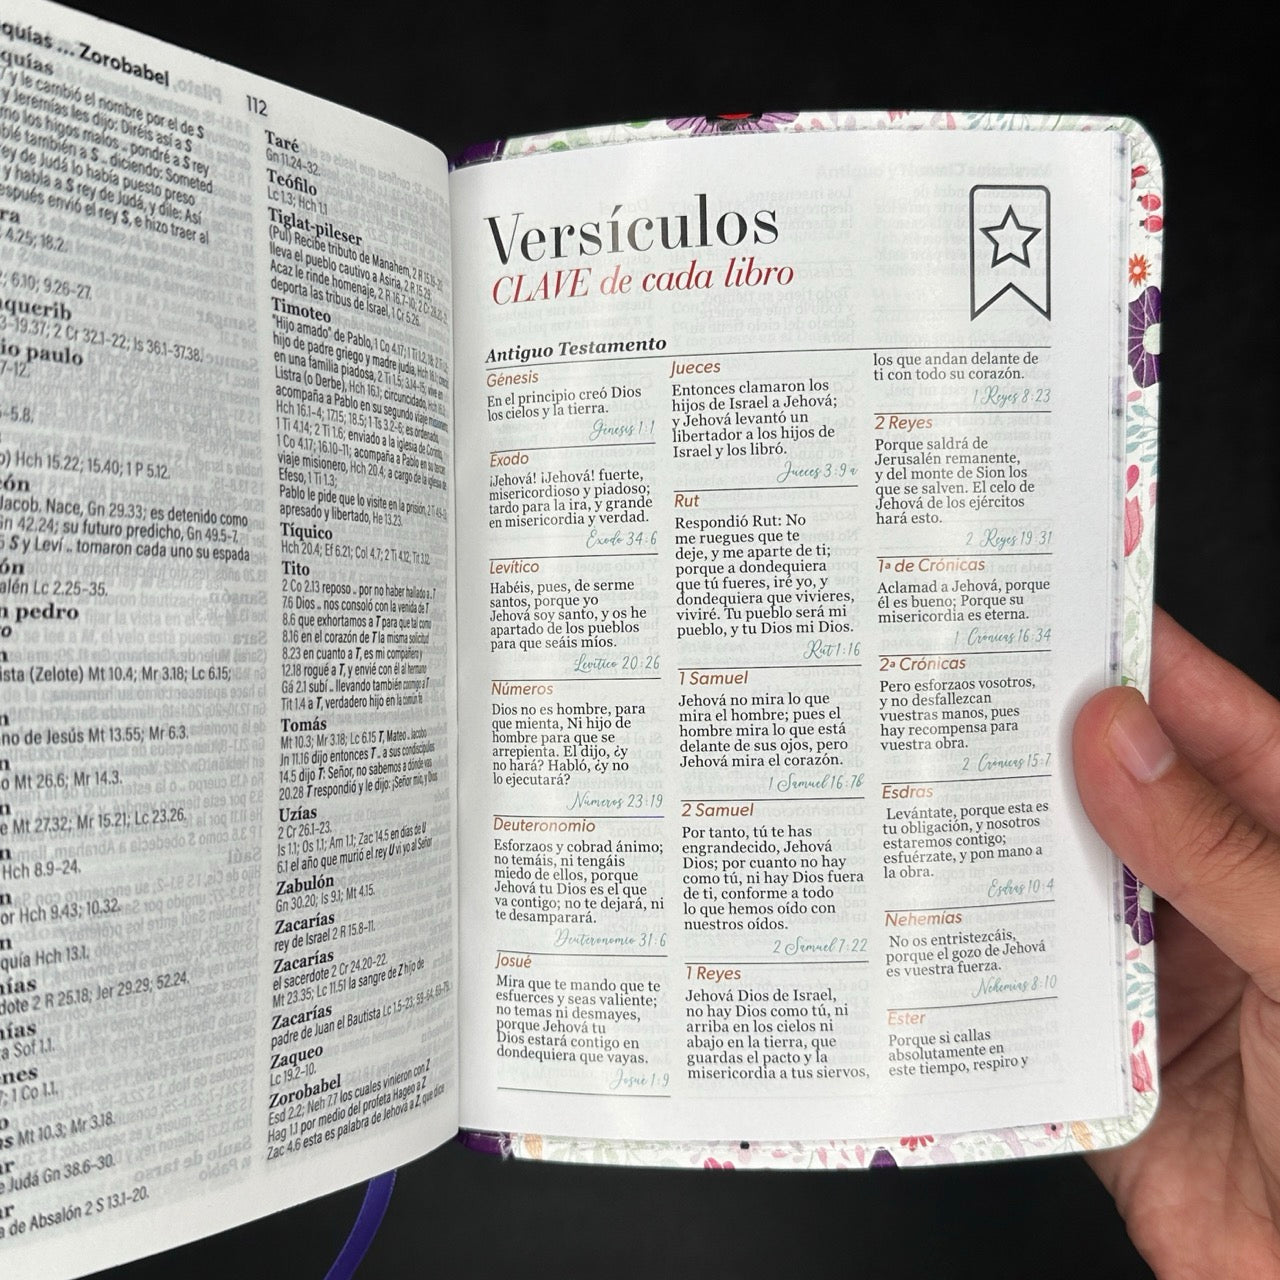 quías ... Zorobabel
112
quías
y le cambió el nombre por el de S
y Jeremías les dijo: Diréis así a S
mo los higos malos .. pondré a S rey
blé también a S .. diciendo: Someted
rey de Judá lo había puesto preso
y habla a S rey de Judá, y dile: Así
espués envió el rey S, e hizo traer al
ra
4.25; 18.2.
6.10; 9.26-27.
querib
3-19.37; 2 Cr 32.1-22; Is 36.1-37.38.
io paulo
7-12.
-5.8.
) Hch 15.22; 15.40; 1 P 5.12.
ón
Jacob. Nace, Gn 29.33; es detenido como
Gn 42.24; su futuro predicho, Gn 49.5-7.
S y Leví .. tomaron cada uno su espada
ón
alén Lc 2.25-35.
n pedro
o
n
ista (Zelote) Mt 10.4; Mr 3.18; Lc 6.15;
n
no de Jesús Mt 13.55; Mr 6.3.
n
o Mt 26.6; Mr 14.3.
n
e Mt 27.32; Mr 15.21; Lc 23.26.
n
Hch 8.9-24.
n
or Hch 9.43; 10.32.
n
quía Hch 13.1.
nías
dote 2 R 25.18; Jer 29.29; 52.24.
nías
a Sof 1.1.
nes
; 1 Co 1.1.
o
as Mt 10.3; Mr 3.18.
ar
e Judá Gn 38.6-30.
ar
a de Absalón 2 S 13.1-20.
Taré
Gn 11.24-32.
Teófilo
Lc 1.3; Hch 1.1
Tiglat-pileser
(Pul) Recibe tributo de Manahem, 2 R 15.19-20
lleva el pueblo cautivo a Asiria, 2 R 15.29
Acaz le rinde homenaje, 2 R 16.7-10;
deporta las tribus de Israel, 1 Cr 5.26.
Timoteo
"Hijo amado" de Pablo, 1 Co 4.17; 1 Ti 1.2,
hijo de padre griego y madre judía, Hch 16.1;
en una familia piadosa, 2 Ti 1.5; 3.14-15;
Listra (o Derbe), Hch 16.1; circuncidado,
acompaña a Pablo en su segundo viaje
Hch 16.1-4; 17.15; 18.5; 1 Ts 3.2-6; es ordenado,
1 Ti 4.14; 2 Ti 1.6; enviado a la iglesia de
1 Co 4.17; 16.10-11; acompaña a Pablo en su tercer
viaje misionero, Hch 20.4; a cargo de la iglesia de
Efeso, 1 Ti 1.3;
Pablo le pide que lo visite en la prisión,
apresado y libertado, He 13.23.
Tíquico
Hch 20.4; Ef 6.21; Col 4.7; 2 Ti 4.12; Tit 3.12.
Tito
2 Co 2.13 reposo .. por no haber hallado a T
7.6 Dios .. nos consoló con la venida de T
8.6 que exhortamos a T para que tal como
8.16 en el corazón de T la misma solicitud
8.23 en cuanto a T, es mi compañero y
12.18 rogué a T, y envié con él al hermano
Gá 2.1 subí .. llevando también conmigo a T
Tit 1.4 a T, verdadero hijo en la común fe
Tomás
Mt 10.3; Mr 3.18; Lc 6.15 T, Mateo .. Jacobo
Jn 11.16 dijo entonces T .. a sus condiscípulos
14.5 dijo T: Señor, no sabemos a dónde vas
20.28 T respondió y le dijo: ¡Señor mío, y Dios
Uzías
2 Cr 26.1-23.
Is 1.1; Os 1.1; Am 1.1; Zac 14.5 en días de U
6.1 el año que murió el rey U vi yo al Señor
Zabulón
Gn 30.20; Is 9.1; Mt 4.15.
Zacarías
rey de Israel 2 R 15.8-11.
Zacarías
el sacerdote 2 Cr 24.20-22.
Mt 23.35; Lc 11.51 la sangre de Z hijo de
Zacarías
padre de Juan el Bautista Lc 1.5-23,
Zaqueo
Lc 19.2-10.
Zorobabel
Esd 2.2; Neh 7.7 los cuales vinieron con Z
Hag 1.1 por medio del profeta Hageo a Z
Zac 4.6 esta es palabra de Jehová a Z, que dice
Versículos
CLAVE de cada libro
Antiguo Testamento
Génesis
En el principio creó Dios
los cielos y la tierra.
Génesis 1:1
Éxodo
¡Jehová! ¡Jehová! fuerte,
misericordioso y piadoso;
tardo para la ira, y grande
en misericordia y verdad.
Éxodo 34:6
Levítico
Habéis, pues, de serme
santos, porque yo
Jehová soy santo, y os he
apartado de los pueblos
para que seáis míos.
Levítico 20:26
Números
Dios no es hombre, para
que mienta, Ni hijo de
hombre para que se
arrepienta. El dijo, ¿y
no hará? Habló, ¿y no
lo ejecutará?
Números 23:19
Deuteronomio
Esforzaos y cobrad ánimo;
no temáis, ni tengáis
miedo de ellos, porque
Jehová tu Dios es el que
va contigo; no te dejará, ni
te desamparará.
Deuteronomio 31:6
Josué
Mira que te mando que te
esfuerces y seas valiente;
no temas ni desmayes,
porque Jehová tu
Dios estará contigo en
dondequiera que vayas.
Josué 1:9
Jueces
Entonces clamaron los
hijos de Israel a Jehová;
y Jehová levantó un
libertador a los hijos de
Israel y los libró.
Jueces 3:9a
Rut
Respondió Rut: No
me ruegues que te
deje, y me aparte de ti;
porque a dondequiera
que tú fueres, iré yo, y
dondequiera que vivieres,
viviré. Tu pueblo será mi
pueblo, y tu Dios mi Dios.
Rut 1:16
1 Samuel
Jehová no mira lo que
mira el hombre; pues el
hombre mira lo que está
delante de sus ojos, pero
Jehová mira el corazón.
1 Samuel 16:7b
2 Samuel
Por tanto, tú te has
engrandecido, Jehová
Dios; por cuanto no hay
como tú, ni hay Dios fuera
de ti, conforme a todo
lo que hemos oído con
nuestros oídos.
2 Samuel 7:22
1 Reyes
Jehová Dios de Israel,
no hay Dios como tú, ni
arriba en los cielos ni
abajo en la tierra, que
guardas el pacto y la
misericordia a tus siervos,
los que andan delante de
ti con todo su corazón.
1 Reyes 8:23
2 Reyes
Porque saldrá de
Jerusalén remanente,
y del monte de Sion los
que se salven. El celo de
Jehová de los ejércitos
hará esto.
2 Reyes 19:31
1ª de Crónicas
Aclamad a Jehová, porque
él es bueno; Porque su
misericordia es eterna.
1 Crónicas 16:34
2ª Crónicas
Pero esforzaos vosotros,
y no desfallezcan
vuestras manos, pues
hay recompensa para
vuestra obra.
2 Crónicas 15:7
Esdras
Levántate, porque esta es
tu obligación, y nosotros
estaremos contigo;
esfuérzate, y pon mano a
la obra.
Esdras 10:4
Nehemías
No os entristezcáis,
porque el gozo de Jehová
es vuestra fuerza.
Nehemías 8:10
Ester
Porque si callas
absolutamente en
este tiempo, respiro y